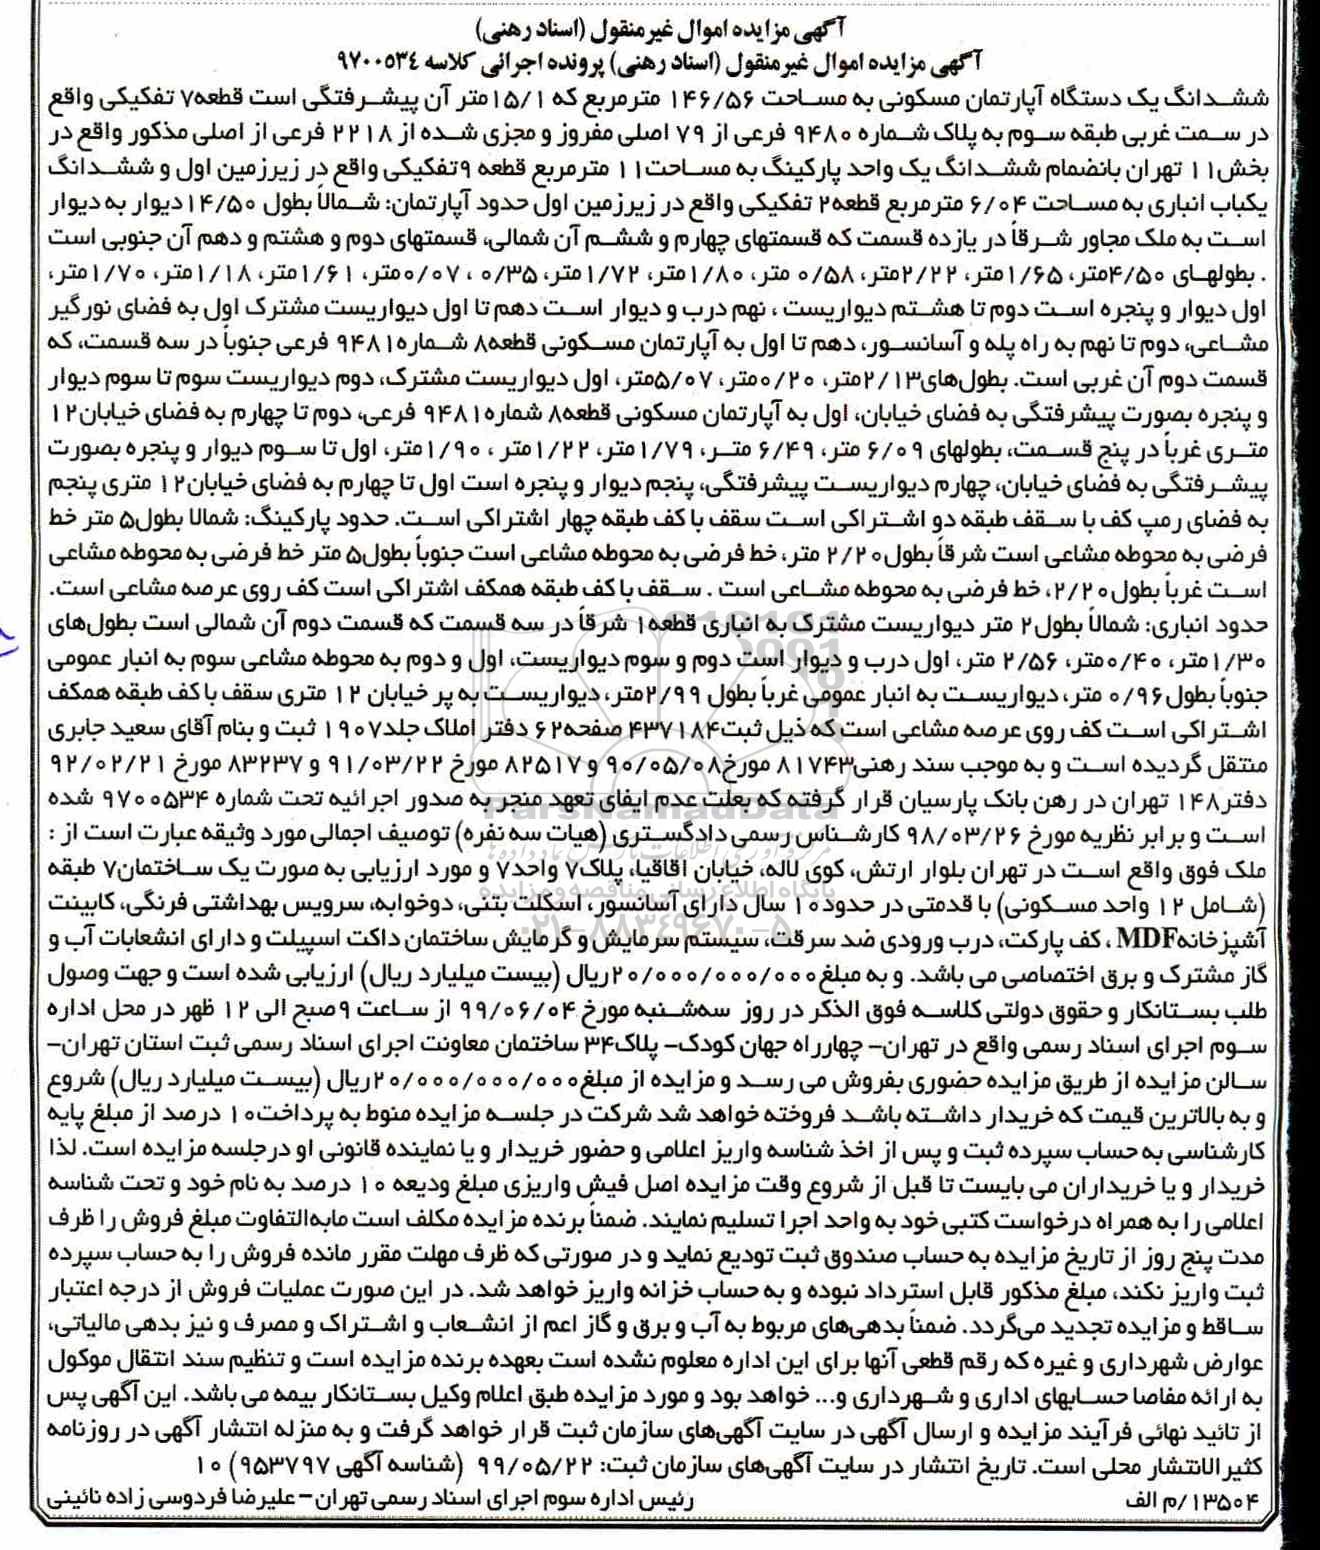 آگهی مزایده اموال غیرمنقول (اسناد رهنی)
آگهی مزایده اموال غیرمنقول (اسناد رهنی) پرونده اجرائی کلاسه ۹۷۰۰۵۳۴
ششدانگ یک دستگاه آپارتمان مسکونی به مساحت ۱۴۶/۵۶ مترمربع که ۱۵/۱متر آن پیشرفتگی است قطعه۷ تفکیکی واقع
در سمت غربی طبقه سوم به پلاک شماره ۹۴۸۰ فرعی از ۷۹ اصلی مفروز و مجزی شده از ۲۲۱۸ فرعی از اصلی مذکور واقع در
بخش۱۱ تهران بانضمام ششدانگ یک واحد پارکینگ به مساحت۱۱ مترمربع قطعه ۹تفکیکی واقع در زیرزمین اول و ششدانگ
یکباب انباری به مساحت ۶/۰۴ مترمربع قطعه۲ تفکیکی واقع در زیرزمین اول حدود آپارتمان: شمالاً بطول ۱۴/۵۰دیوار به دیوار
است به ملک مجاور شرقاً در یازده قسمت که قسمتهای چهارم و ششم آن شمالی، قسمتهای دوم و هشتم و دهم آن جنوبی است
. بطولهای ۴/۵۰متر، ۱/۶۵متر، ۲/۲۲متر، ۰/۵۸ متر، ۱/۸۰متر، ۱/۷۲متر، ۰/۳۵ ، ۰/۰۷متر، ۱/۶۱متر، ۱/۱۸متر، ۱/۷۰متر،
اول دیوار و پنجره است دوم تا هشتم دیواریست ، نهم درب و دیوار است دهم تا اول دیواریست مشترک اول به فضای نورگیر
مشاعی، دوم تا نهم به راه پله و آسانسور، دهم تا اول به آپارتمان مسکونی قطعه۸ شماره۹۴۸۱ فرعی جنوباً در سه قسمت، که
قسمت دوم آن غربی است. بطول‌های۲/۱۳متر، ۰/۲۰متر، ۵/۰۷متر، اول دیواریست مشترک، دوم دیواریست سوم تا سوم دیوار
و پنجره بصورت پیشرفتگی به فضای خیابان، اول به آپارتمان مسکونی قطعه۸ شماره۹۴۸۱ فرعی، دوم تا چهارم به فضای خیابان۱۲
متری غرباً در پنج قسمت، بطولهای ۶/۰۹ متر، ۶/۴۹ متر، ۱/۷۹متر، ۱/۲۲متر ، ۱/۹۰متر، اول تا سوم دیوار و پنجره بصورت
پیشرفتگی به فضای خیابان، چهارم دیواریست پیشرفتگی، پنجم دیوار و پنجره است اول تا چهارم به فضای خیابان۱۲ متری پنجم
به فضای رمپ کف با سقف طبقه دو اشتراکی است سقف با کف طبقه چهار اشتراکی است. حدود پارکینگ: شمالا بطول۵ متر خط
فرضی به محوطه مشاعی است شرقاً بطول۲/۲۰ متر، خط فرضی به محوطه مشاعی است جنوباً بطول۵ متر خط فرضی به محوطه مشاعی
است غرباً بطول۲/۲۰، خط فرضی به محوطه مشاعی است . سقف با کف طبقه همکف اشتراکی است کف روی عرصه مشاعی است.
حدود انباری: شمالاً بطول۲ متر دیواریست مشترک به انباری قطعه۱ شرقاً در سه قسمت که قسمت دوم آن شمالی است بطول‌های
۱/۳۰متر، ۰/۴۰متر، ۲/۵۶ متر، اول درب و دیوار است دوم و سوم دیواریست، اول و دوم به محوطه مشاعی سوم به انبار عمومی
جنوباً بطول۰/۹۶ متر، دیواریست به انبار عمومی غرباً بطول ۲/۹۹متر، دیواریست به پر خیابان ۱۲ متری سقف با کف طبقه همکف
اشتراکی است کف روی عرصه مشاعی است که ذیل ثبت۴۳۷۱۸۴ صفحه۶۲ دفتر املاک جلد۱۹۰۷ ثبت و بنام آقای سعید جابری
منتقل گردیده است و به موجب سند رهنی۸۱۷۴۳ مورخ۹۰/۰۵/۰۸ و ۸۲۵۱۷ مورخ ۹۱/۰۳/۲۲ و ۸۳۲۳۷ مورخ ۹۲/۰۲/۲۱
دفتر۱۴۸ تهران در رهن بانک پارسیان قرار گرفته که بعلت عدم ایفای تعهد منجر به صدور اجرائیه تحت شماره ۹۷۰۰۵۳۴ شده
است و برابر نظریه مورخ ۹۸/۰۳/۲۶ کارشناس رسمی دادگستری (هیات سه نفره) توصیف اجمالی مورد وثیقه عبارت است از :
ملک فوق واقع است در تهران بلوار ارتش، کوی لاله، خیابان اقاقیا، پلاک۷ واحد۷ و مورد ارزیابی به صورت یک ساختمان۷ طبقه
(شامل ۱۲ واحد مسکونی) با قدمتی در حدود۱۰ سال دارای آسانسور، اسکلت بتنی، دوخوابه، سرویس بهداشتی فرنگی، کابینت
آشپزخانهMDF ، کف پارکت، درب ورودی ضد سرقت، سیستم سرمایش و گرمایش ساختمان داکت اسپیلت و دارای انشعابات آب و
گاز مشترک و برق اختصاصی می باشد. و به مبلغ۲۰/۰۰۰/۰۰۰/۰۰۰ریال (بیست میلیارد ریال) ارزیابی شده است و جهت وصول
طلب بستانکار و حقوق دولتی کلاسه فوق الذکر در روز سه‌شنبه مورخ ۹۹/۰۶/۰۴ از ساعت ۹صبح الی ۱۲ ظهر در محل اداره
سوم اجرای اسناد رسمی واقع در تهران- چهارراه جهان کودک- پلاک۳۴ ساختمان معاونت اجرای اسناد رسمی ثبت استان تهران-
سالن مزایده از طریق مزایده حضوری بفروش می رسد و مزایده از مبلغ۲۰/۰۰۰/۰۰۰/۰۰۰ریال (بیست میلیارد ریال) شروع
و به بالاترین قیمت که خریدار داشته باشد فروخته خواهد شد شرکت در جلسه مزایده منوط به پرداخت۱۰ درصد از مبلغ پایه
کارشناسی به حساب سپرده ثبت و پس از اخذ شناسه واریز اعلامی و حضور خریدار و یا نماینده قانونی او درجلسه مزایده است. لذا
خریدار و یا خریداران می بایست تا قبل از شروع وقت مزایده اصل فیش واریزی مبلغ ودیعه ۱۰ درصد به نام خود و تحت شناسه
اعلامی را به همراه درخواست کتبی خود به واحد اجرا تسلیم نمایند. ضمناً برنده مزایده مکلف است مابه‌التفاوت مبلغ فروش را ظرف
مدت پنج روز از تاریخ مزایده به حساب صندوق ثبت تودیع نماید و در صورتی که ظرف مهلت مقرر مانده فروش را به حساب سپرده
ثبت واریز نکند، مبلغ مذکور قابل استرداد نبوده و به حساب خزانه واریز خواهد شد. در این صورت عملیات فروش از درجه اعتبار
ساقط و مزایده تجدید می‌گردد. ضمناً بدهی‌های مربوط به آب و برق و گاز اعم از انشعاب و اشتراک و مصرف و نیز بدهی مالیاتی،
عوارض شهرداری و غیره که رقم قطعی آنها برای این اداره معلوم نشده است بعهده برنده مزایده است و تنظیم سند انتقال موکول
به ارائه مفاصا حسابهای اداری و شهرداری و... خواهد بود و مورد مزایده طبق اعلام وکیل بستانکار بیمه می باشد. این آگهی پس
از تائید نهائی فرآیند مزایده و ارسال آگهی در سایت آگهی‌های سازمان ثبت قرار خواهد گرفت و به منزله انتشار آگهی در روزنامه
کثیرالانتشار محلی است. تاریخ انتشار در سایت آگهی‌های سازمان ثبت: ۹۹/۰۵/۲۲ (شناسه آگهی ۹۵۳۷۹۷) ۱۰
۱۳۵۰۴/م الف رئیس اداره سوم اجرای اسناد رسمی تهران- علیرضا فردوسی زاده نائینی
ParsNamadData
پایگاه اطلاع رسانی مناقصه و مزایده
۰۲۱-۸۸۳۴۹۶۷۰-۵